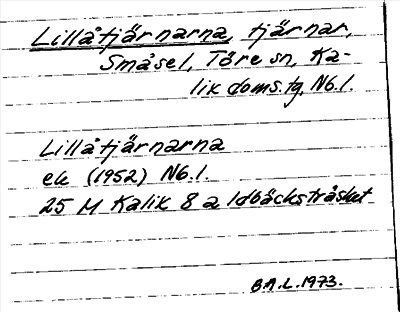 Lillåtjärnarna, tjärnar,
Småsel, Töre sn, Ka-
lix doms.tg, Nb.l.
Lillåtjärnarna
ek (1952) Nb.l.
25 M Kalix 8 a Idbäcksträsket
B.A.L. 1973.